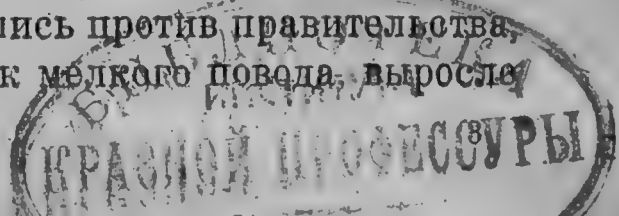 лись против правительства,
к мелкого повода, выросло
БИБЛИОТЕКА
КРАСНОЙ ПРОФЕССУРЫ
3